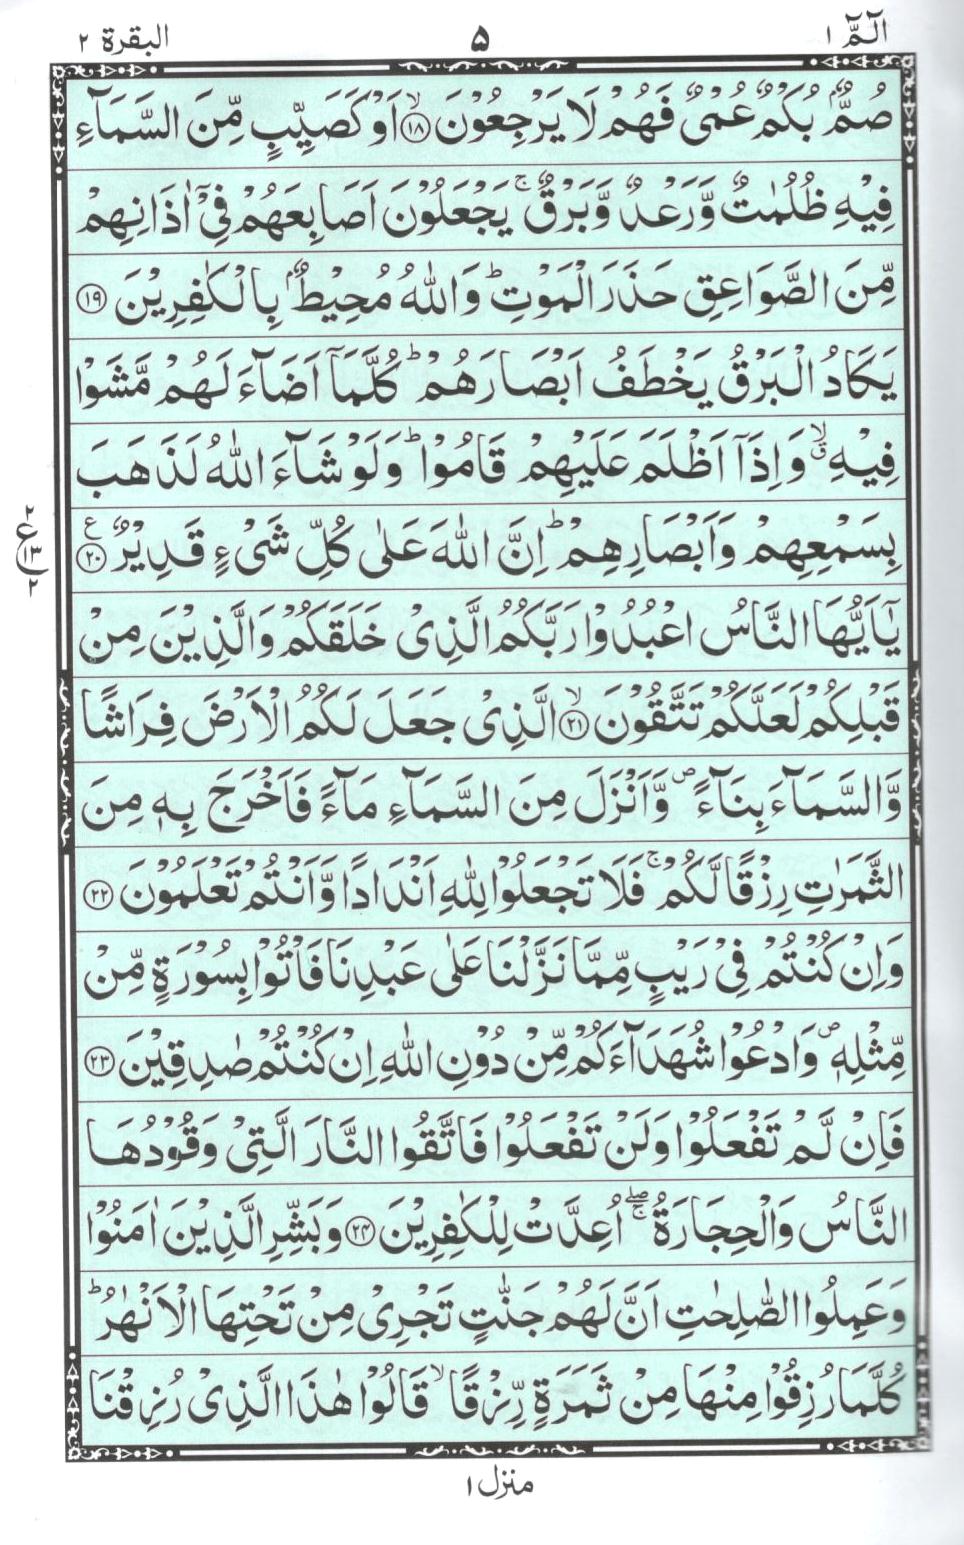 الٓمّٓ ١ ٥ البقرة ٢
صُمٌّۢ بُكْمٌ عُمْیٌ فَهُمْ لَا یَرْجِعُوْنَ ۙ﴿١٨﴾ اَوْ كَصَیِّبٍ مِّنَ السَّمَآءِ
فِیْهِ ظُلُمٰتٌ وَّرَعْدٌ وَّبَرْقٌ ۚ یَجْعَلُوْنَ اَصَابِعَهُمْ فِیْۤ اٰذَانِهِمْ
مِّنَ الصَّوَاعِقِ حَذَرَ الْمَوْتِ ؕ وَاللّٰهُ مُحِیْطٌۢ بِالْكٰفِرِیْنَ ﴿١٩﴾
یَكَادُ الْبَرْقُ یَخْطَفُ اَبْصَارَهُمْ ؕ كُلَّمَاۤ اَضَآءَ لَهُمْ مَّشَوْا
فِیْهِ ۙۗ وَاِذَاۤ اَظْلَمَ عَلَیْهِمْ قَامُوْا ؕ وَلَوْ شَآءَ اللّٰهُ لَذَهَبَ
بِسَمْعِهِمْ وَاَبْصَارِهِمْ ؕ اِنَّ اللّٰهَ عَلٰی كُلِّ شَیْءٍ قَدِیْرٌ ﴿٢٠﴾ ع
٢ ع ١٣ ٢
یٰۤاَیُّهَا النَّاسُ اعْبُدُوْا رَبَّكُمُ الَّذِیْ خَلَقَكُمْ وَالَّذِیْنَ مِنْ
قَبْلِكُمْ لَعَلَّكُمْ تَتَّقُوْنَ ۙ﴿٢١﴾ الَّذِیْ جَعَلَ لَكُمُ الْاَرْضَ فِرَاشًا
وَّالسَّمَآءَ بِنَآءً ۪ وَّاَنْزَلَ مِنَ السَّمَآءِ مَآءً فَاَخْرَجَ بِهٖ مِنَ
الثَّمَرٰتِ رِزْقًا لَّكُمْ ۚ فَلَا تَجْعَلُوْا لِلّٰهِ اَنْدَادًا وَّاَنْتُمْ تَعْلَمُوْنَ ﴿٢٢﴾
وَاِنْ كُنْتُمْ فِیْ رَیْبٍ مِّمَّا نَزَّلْنَا عَلٰی عَبْدِنَا فَاْتُوْا بِسُوْرَةٍ مِّنْ
مِّثْلِهٖ ۪ وَادْعُوْا شُهَدَآءَكُمْ مِّنْ دُوْنِ اللّٰهِ اِنْ كُنْتُمْ صٰدِقِیْنَ ﴿٢٣﴾
فَاِنْ لَّمْ تَفْعَلُوْا وَلَنْ تَفْعَلُوْا فَاتَّقُوا النَّارَ الَّتِیْ وَقُوْدُهَا
النَّاسُ وَالْحِجَارَةُ ۖۚ اُعِدَّتْ لِلْكٰفِرِیْنَ ﴿٢٤﴾ وَبَشِّرِ الَّذِیْنَ اٰمَنُوْا
وَعَمِلُوا الصّٰلِحٰتِ اَنَّ لَهُمْ جَنّٰتٍ تَجْرِیْ مِنْ تَحْتِهَا الْاَنْهٰرُ ؕ
كُلَّمَا رُزِقُوْا مِنْهَا مِنْ ثَمَرَةٍ رِّزْقًا ۙ قَالُوْا هٰذَا الَّذِیْ رُزِقْنَا
منزل ١